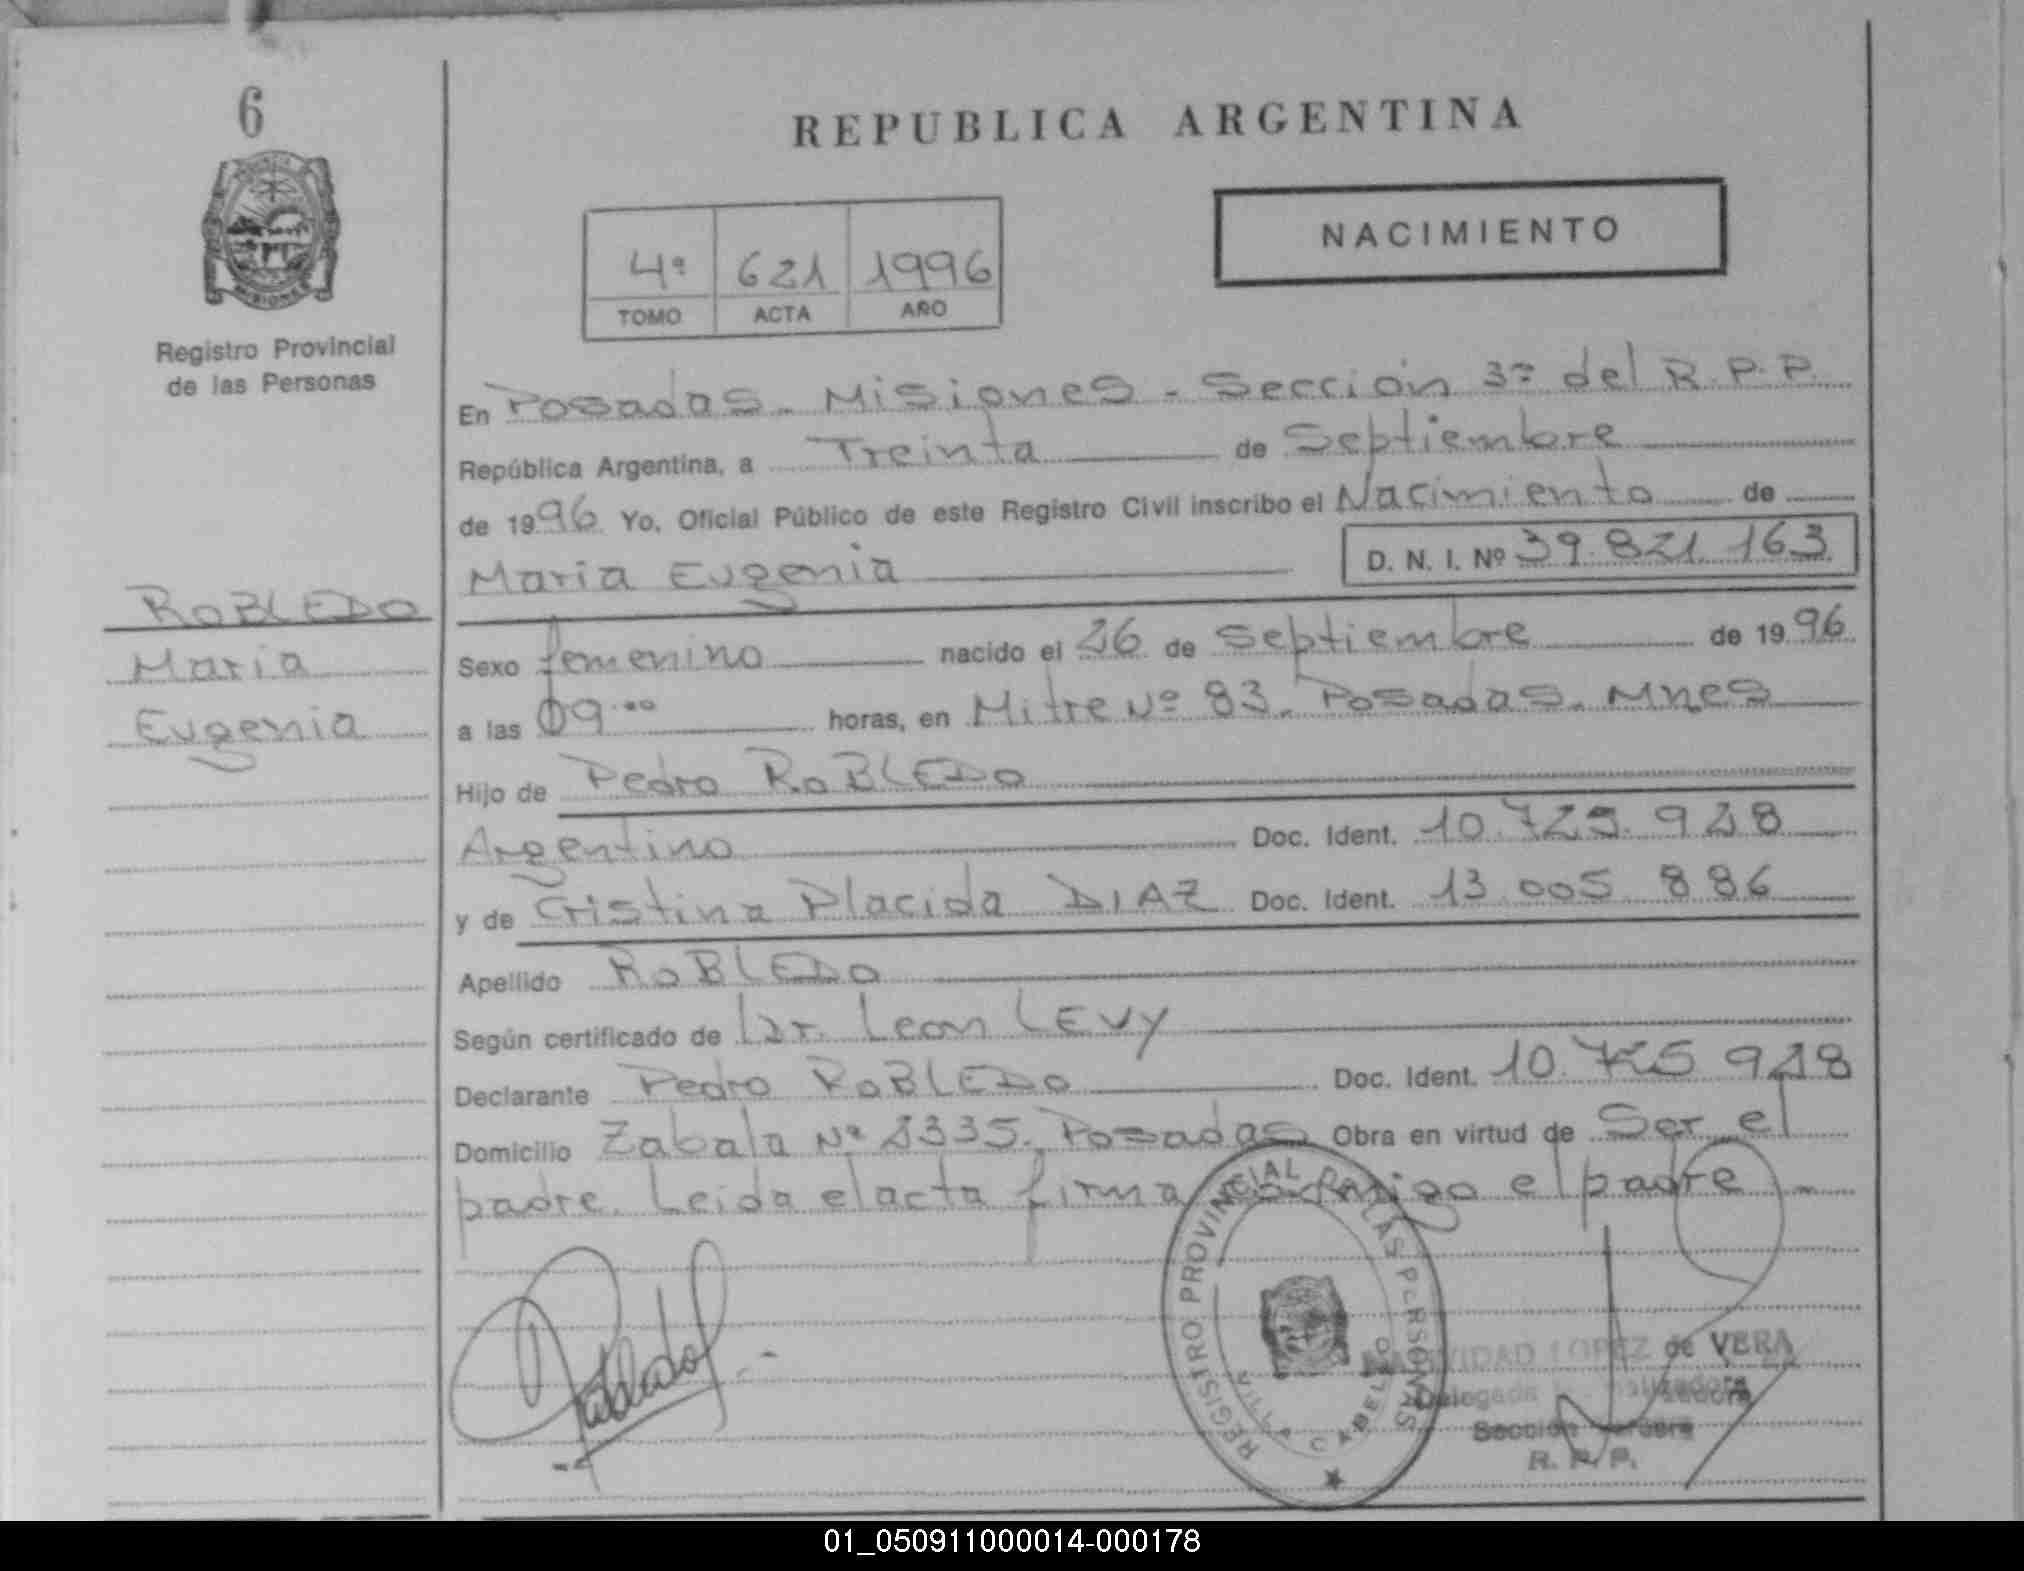 6
REPUBLICA ARGENTINA
NACIMIENTO
4º 621 1996
TOMO ACTA AÑO
MISIONES
Registro Provincial
de las Personas
En Posadas - Misiones - Sección 3ª del R.P.P.
República Argentina, a Treinta de Septiembre
de 1996 Yo, Oficial Público de este Registro Civil inscribo el Nacimiento de
Maria Eugenia D. N. I. Nº 39.821.163
ROBLEDO
Maria
Eugenia
Sexo femenino nacido el 26 de Septiembre de 1996
a las 09.00 horas, en Mitre Nº 83. Posadas. Mnes
Hijo de Pedro ROBLEDO
Argentino Doc. Ident. 10.725.928
y de Cristina Placida DIAZ Doc. Ident. 13.005.886
Apellido ROBLEDO
Según certificado de Dr. Leon LEVY
Declarante Pedro ROBLEDO Doc. Ident. 10.725.928
Domicilio Zabala Nº 2335. Posadas Obra en virtud de Ser el
padre. Leida el acta firma conmigo el padre
REGISTRO PROVINCIAL DE LAS PERSONAS
VILLA CABELLO
NATIVIDAD LOPEZ de VERA
Delegada
Sección Tercera
R. P. P.
01_050911000014-000178